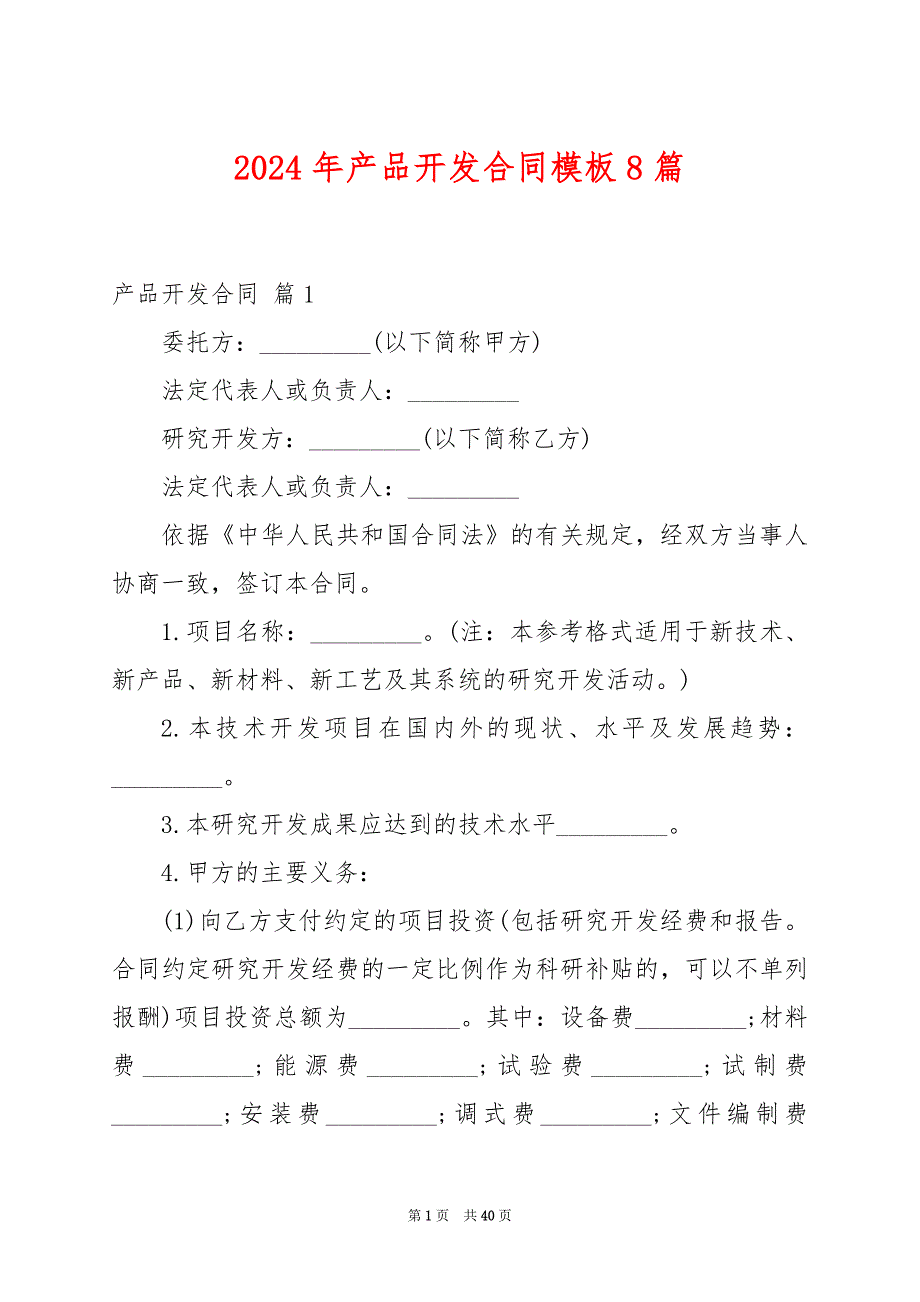 2024 年产品开发合同模板 8 篇
产品开发合同 篇 1
委托方：_________(以下简称甲方)
法定代表人或负责人：_________
研究开发方：_________(以下简称乙方)
法定代表人或负责人：_________
依据《中华人民共和国合同法》的有关规定，经双方当事人
协商一致，签订本合同。
1.项目名称：_________。(注：本参考格式适用于新技术、
新产品、新材料、新工艺及其系统的研究开发活动。)
2.本技术开发项目在国内外的现状、水平及发展趋势：
_________。
3.本研究开发成果应达到的技术水平_________。
4.甲方的主要义务：
(1)向乙方支付约定的项目投资(包括研究开发经费和报告。
合同约定研究开发经费的一定比例作为科研补贴的，可以不单列
报酬)项目投资总额为_________。其中：设备费_________;材料
费_________;能源费_________;试验费_________;试制费
_________;安装费_________;调式费_________;文件编制费
第 1 页 共 40 页